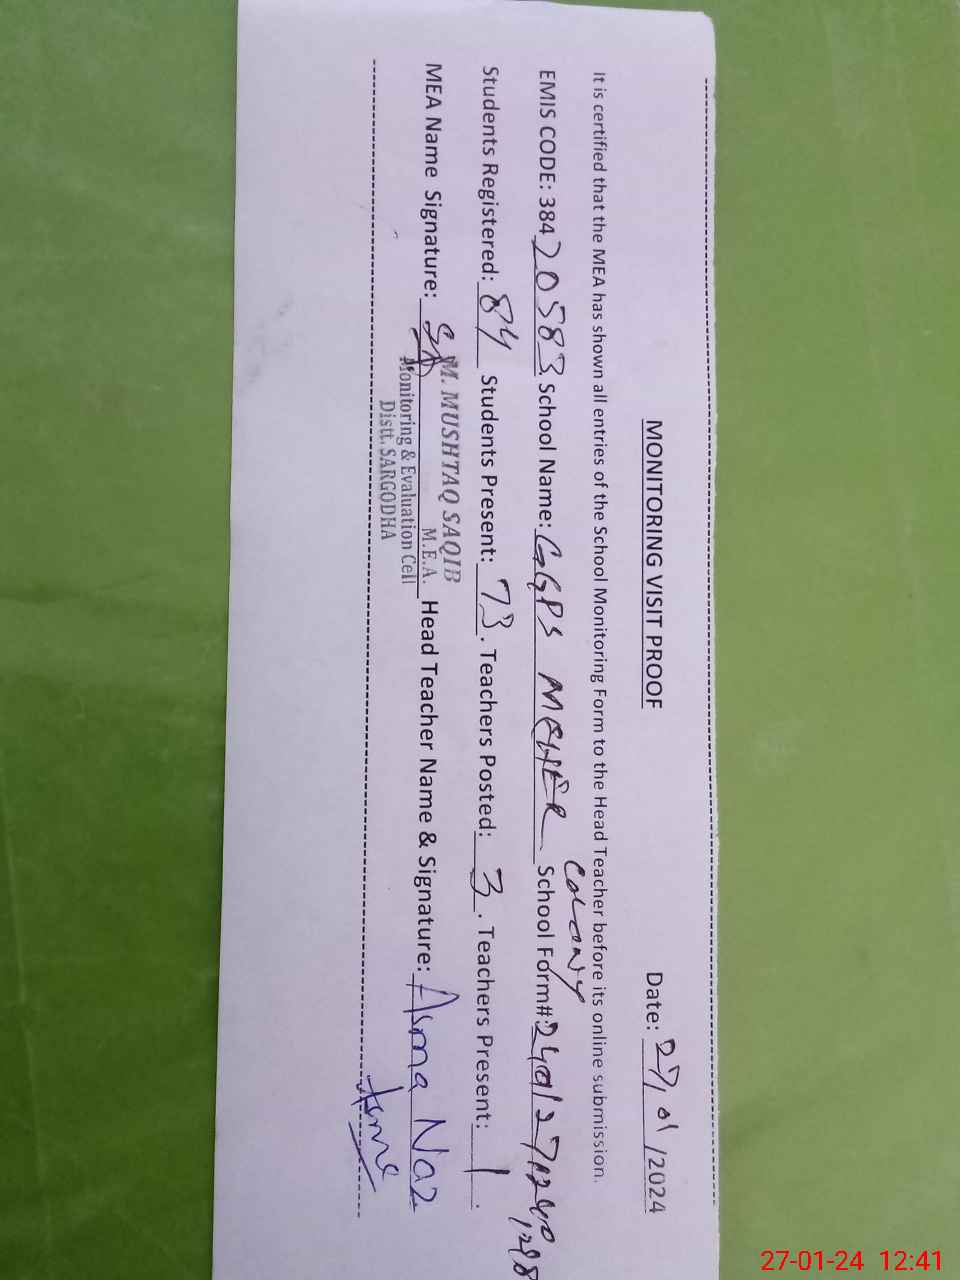 MONITORING VISIT PROOF
Date: 27/01/2024
It is certified that the MEA has shown all entries of the School Monitoring Form to the Head Teacher before its online submission.
EMIS CODE: 384 20583 School Name: GGPS MEHER COLONY School Form#: 240127,1240
1298
Students Registered: 84 Students Present: 73. Teachers Posted: 3. Teachers Present: 1.
MEA Name Signature: Head Teacher Name & Signature: Asma Naz
M. MUSHTAQ SAQIB
M.E.A.
Monitoring & Evaluation Cell
Distt. SARGODHA
Asma
27-01-24 12:41